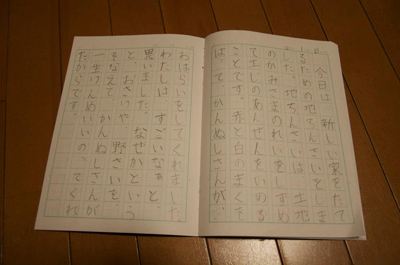 今日は、新しい家をたて
るための地ちんさいをしま
した。地ちんさいは、土地
のかみさまのれいをしずめ
て工じのあんぜんをいのる
ことです。赤と白のまくを
はって、かんぬしさんが、
おはらいをしてくれました。
わたしは、すごいなぁと
思いました。なぜかという
と、おさけや、野さいを、
そなえて、かんぬしさんが
一生けんめいいのってくれ
たからです。